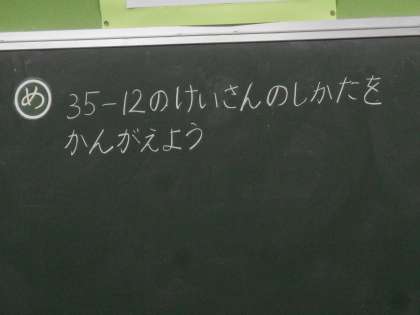 め 35-12のけいさんのしかたを
かんがえよう